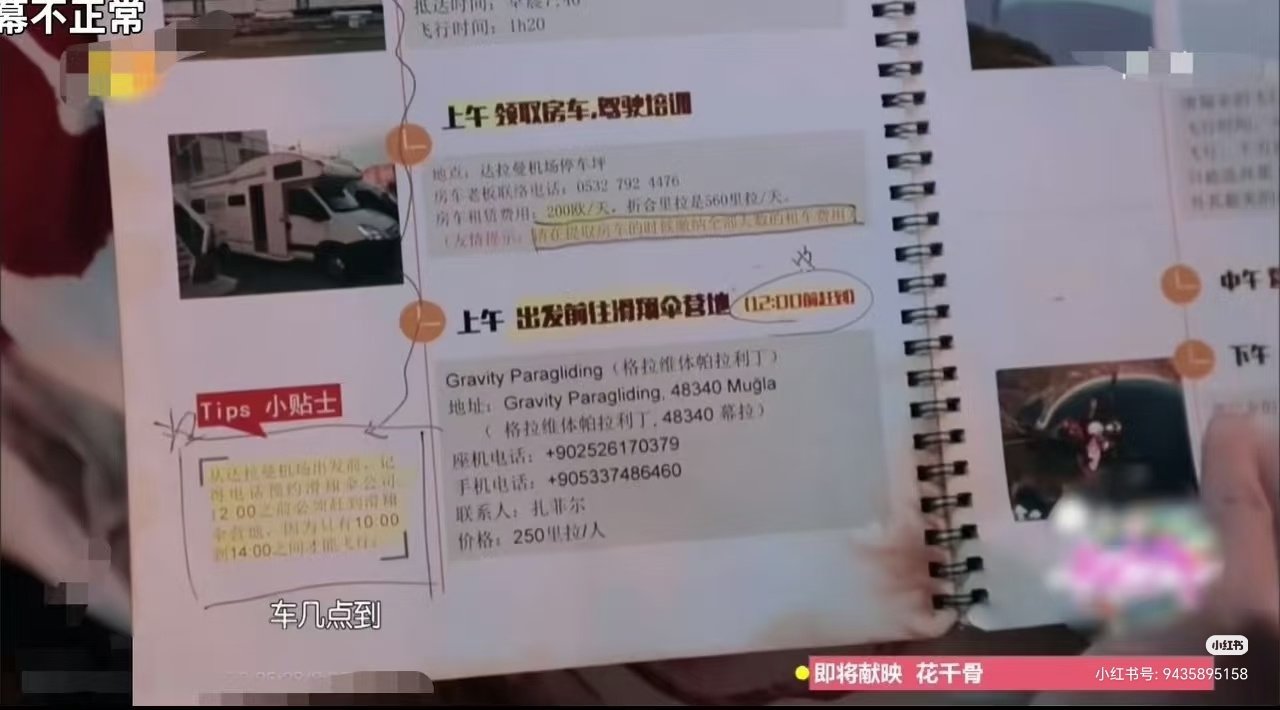 幕不正常
抵达时间：早晨7:40
飞行时间：1h20
上午 领取房车,驾驶培训
地点：达拉曼机场停车坪
房车老板联络电话：0532 792 4476
房车租赁费用：200欧/天，折合里拉是560里拉/天。
（友情提示：请在提取房车的时候缴纳全部天数的租车费用）
上午 出发前往滑翔伞营地 (12:00前赶到)
Gravity Paragliding（格拉维体帕拉利丁）
地址：Gravity Paragliding, 48340 Muğla
（ 格拉维体帕拉利丁, 48340 幕拉）
座机电话：+902526170379
手机电话：+905337486460
联系人：扎菲尔
价格：250里拉/人
Tips 小贴士
从达拉曼机场出发前，记
得电话预约滑翔伞公司，
12:00之前必须赶到滑翔
伞营地，因为只有10:00
到14:00之间才能飞行。
中午
下午
车几点到
即将献映 花千骨
小红书
小红书号: 9435895158